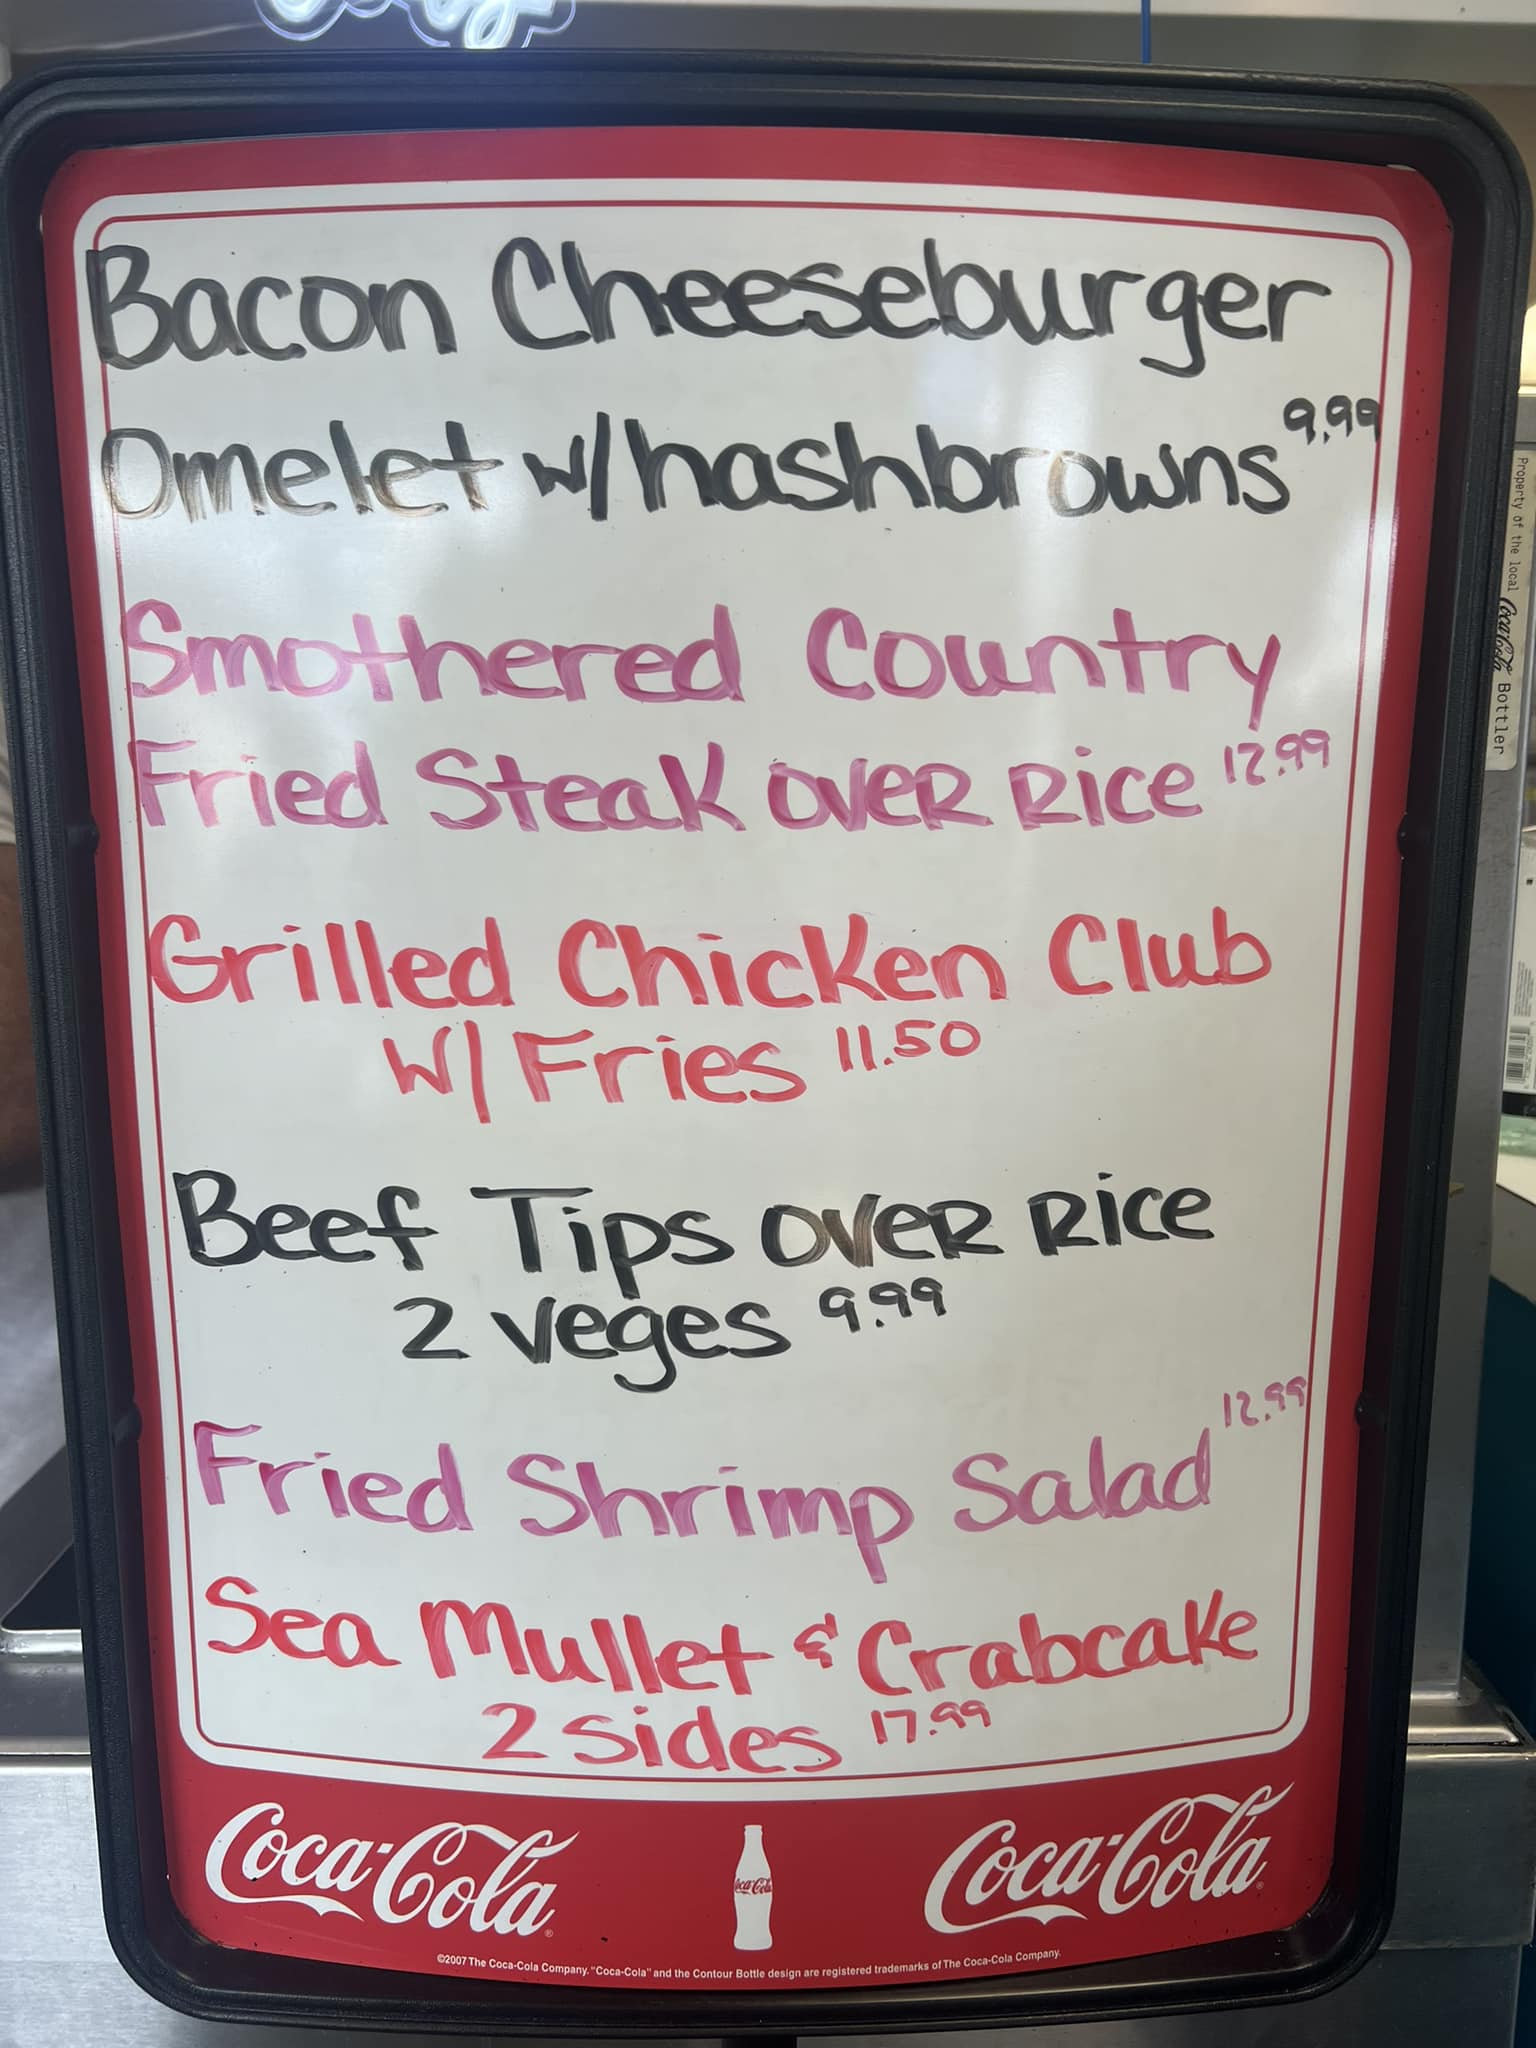 Bacon Cheeseburger
Omelet w/hashbrowns 9.99
Smothered Country
Fried Steak over Rice 12.99
Grilled Chicken Club
w/ Fries 11.50
Beef Tips over Rice
2 veges 9.99
Fried Shrimp Salad 12.99
Sea Mullet & Crabcake
2 sides 17.99
Coca-Cola Coca-Cola Coca-Cola
©2007 The Coca-Cola Company. "Coca-Cola" and the Contour Bottle design are registered trademarks of The Coca-Cola Company.
Property of the local Coca-Cola Bottler